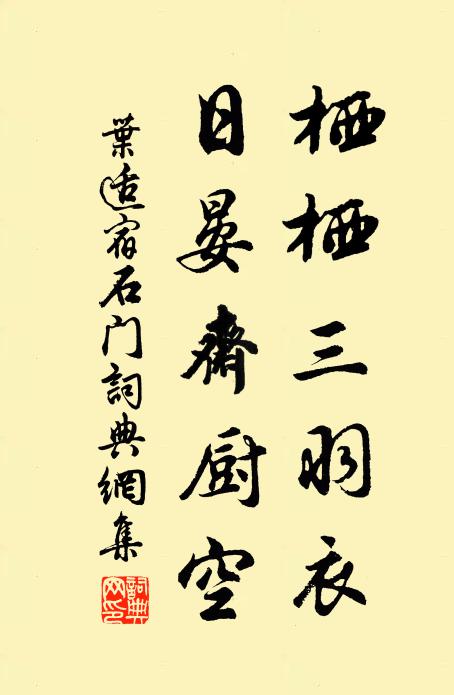 栖栖三羽衣
日晏齋厨空
葉适宿石门詞典網集
詞典網印